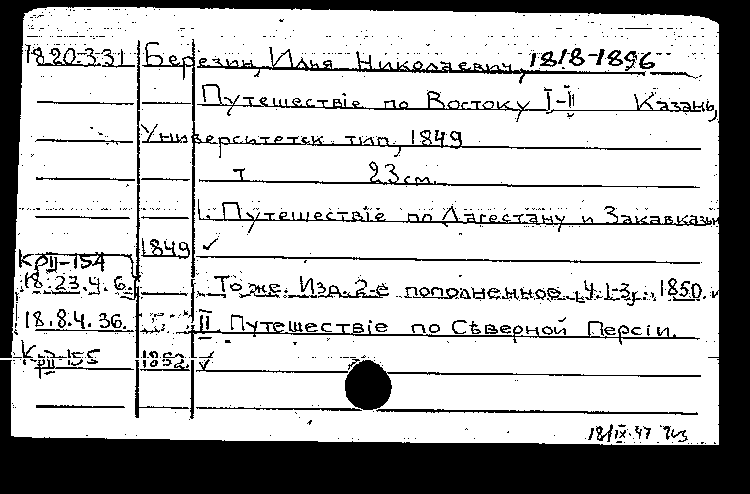 18.20.3.31 Березин, Илья Николаевич, 1818-1896
Путешествіе по Востоку I-II Казань,
Университетск. тип, 1849
т 23 см.
I. Путешествіе по Дагестану и Закавказью
1849 ✓
КрII-154
18.23.4.6. То же. Изд. 2-е пополненное, ч. 1-3, 1850.
18.8.4.36. II Путешествіе по Сѣверной Персіи.
КрII-155 1852 ✓
18/IX-47